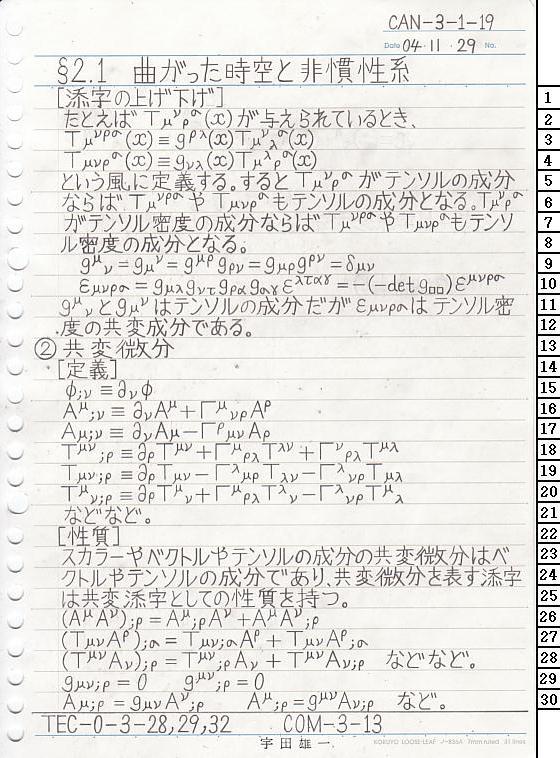 CAN-3-1-19
Date 04・11・29 No.
§2.1 曲がった時空と非慣性系
[添字の上げ下げ] 1
たとえば Tμ^ν_ρ^α(x) が与えられているとき、 2
T_μ^{νρα}(x) ≡ g^{ρλ}(x)T_μ^ν_λ^α(x) 3
T_{μνρ}^α(x) ≡ g_{νλ}(x)T_μ^λ_ρ^α(x) 4
という風に定義する。すると T_μ^ν_ρ^α がテンソルの成分 5
ならば T_μ^{νρα} や T_{μνρ}^α もテンソルの成分となる。T_μ^ν_ρ^α 6
がテンソル密度の成分ならば T_μ^{νρα} や T_{μνρ}^α もテンソ 7
ル密度の成分となる。 8
g^μ_ν = g_μ^ν = g^{μρ}g_{ρν} = g_{μρ}g^{ρν} = δ_{μν} 9
ε_{μνρα} = g_{μλ}g_{ντ}g_{ρα}g_{αγ}ε^{λταγ} = -(-det g_{□□})ε^{μνρα} 10
g^μ_ν と g_μ^ν はテンソルの成分だが ε_{μνρα} はテンソル密 11
度の共変成分である。 12
② 共変微分 13
[定義] 14
φ_{;ν} ≡ ∂_νφ 15
A^μ_{;ν} ≡ ∂_νA^μ + Γ^μ_{νρ}A^ρ 16
A_{μ;ν} ≡ ∂_νA_μ - Γ^ρ_{μν}A_ρ 17
T^{μν}_{;ρ} ≡ ∂_ρT^{μν} + Γ^μ_{ρλ}T^{λν} + Γ^ν_{ρλ}T^{μλ} 18
T_{μν;ρ} ≡ ∂_ρT_{μν} - Γ^λ_{μρ}T_{λν} - Γ^λ_{νρ}T_{μλ} 19
T^μ_{ν;ρ} ≡ ∂_ρT^μ_ν + Γ^μ_{ρλ}T^λ_ν - Γ^λ_{νρ}T^μ_λ 20
などなど。 21
[性質] 22
スカラーやベクトルやテンソルの成分の共変微分はベ 23
クトルやテンソルの成分であり、共変微分を表す添字 24
は共変添字としての性質を持つ。 25
(A^μA^ν)_{;ρ} = A^μ_{;ρ}A^ν + A^μA^ν_{;ρ} 26
(T_{μν}A^ρ)_{;α} = T_{μν;α}A^ρ + T_{μν}A^ρ_{;α} 27
(T^{μν}A_ν)_{;ρ} = T^{μν}_{;ρ}A_ν + T^{μν}A_{ν;ρ} などなど。 28
g_{μν;ρ} = 0 g^{μν}_{;ρ} = 0 29
A_{μ;ρ} = g_{μν}A^ν_{;ρ} A^μ_{;ρ} = g^{μν}A_{ν;ρ} など。 30
TEC-0-3-28,29,32 COM-3-13
宇田雄一 KOKUYO LOOSE-LEAF ノ-836A 7mm ruled 31 lines